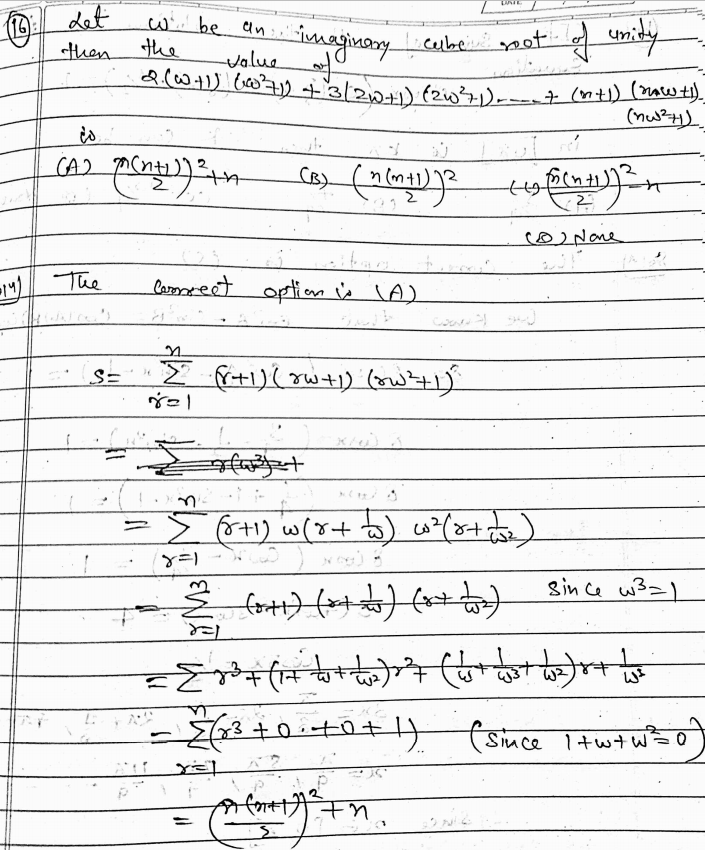 DATE
16 Let ω be an imaginary cube root of unity
then the value of
2(ω+1)(ω²+1) + 3(2ω+1)(2ω²+1)-----+ (n+1)(nω+1)
(nω²+1)
is
(A) (n(n+1)/2)²+n (B) (n(n+1)/2)² (C) (n(n+1)/2)²-n
(D) None
The correct option is (A)
S= n∑r=1 (r+1)(rω+1)(rω²+1)
= n∑r=1 (r+1) ω(r+1/ω) ω²(r+1/ω²)
= n∑r=1 (r+1)(r+1/ω)(r+1/ω²) Since ω³=1
= ∑ r³+(1+1/ω+1/ω²)r²+(1/ω+1/ω³+1/ω²)r+1/ω³
= n∑r=1 (r³+0+0+1) (Since 1+ω+ω²=0)
= (n(n+1)/2)²+n.